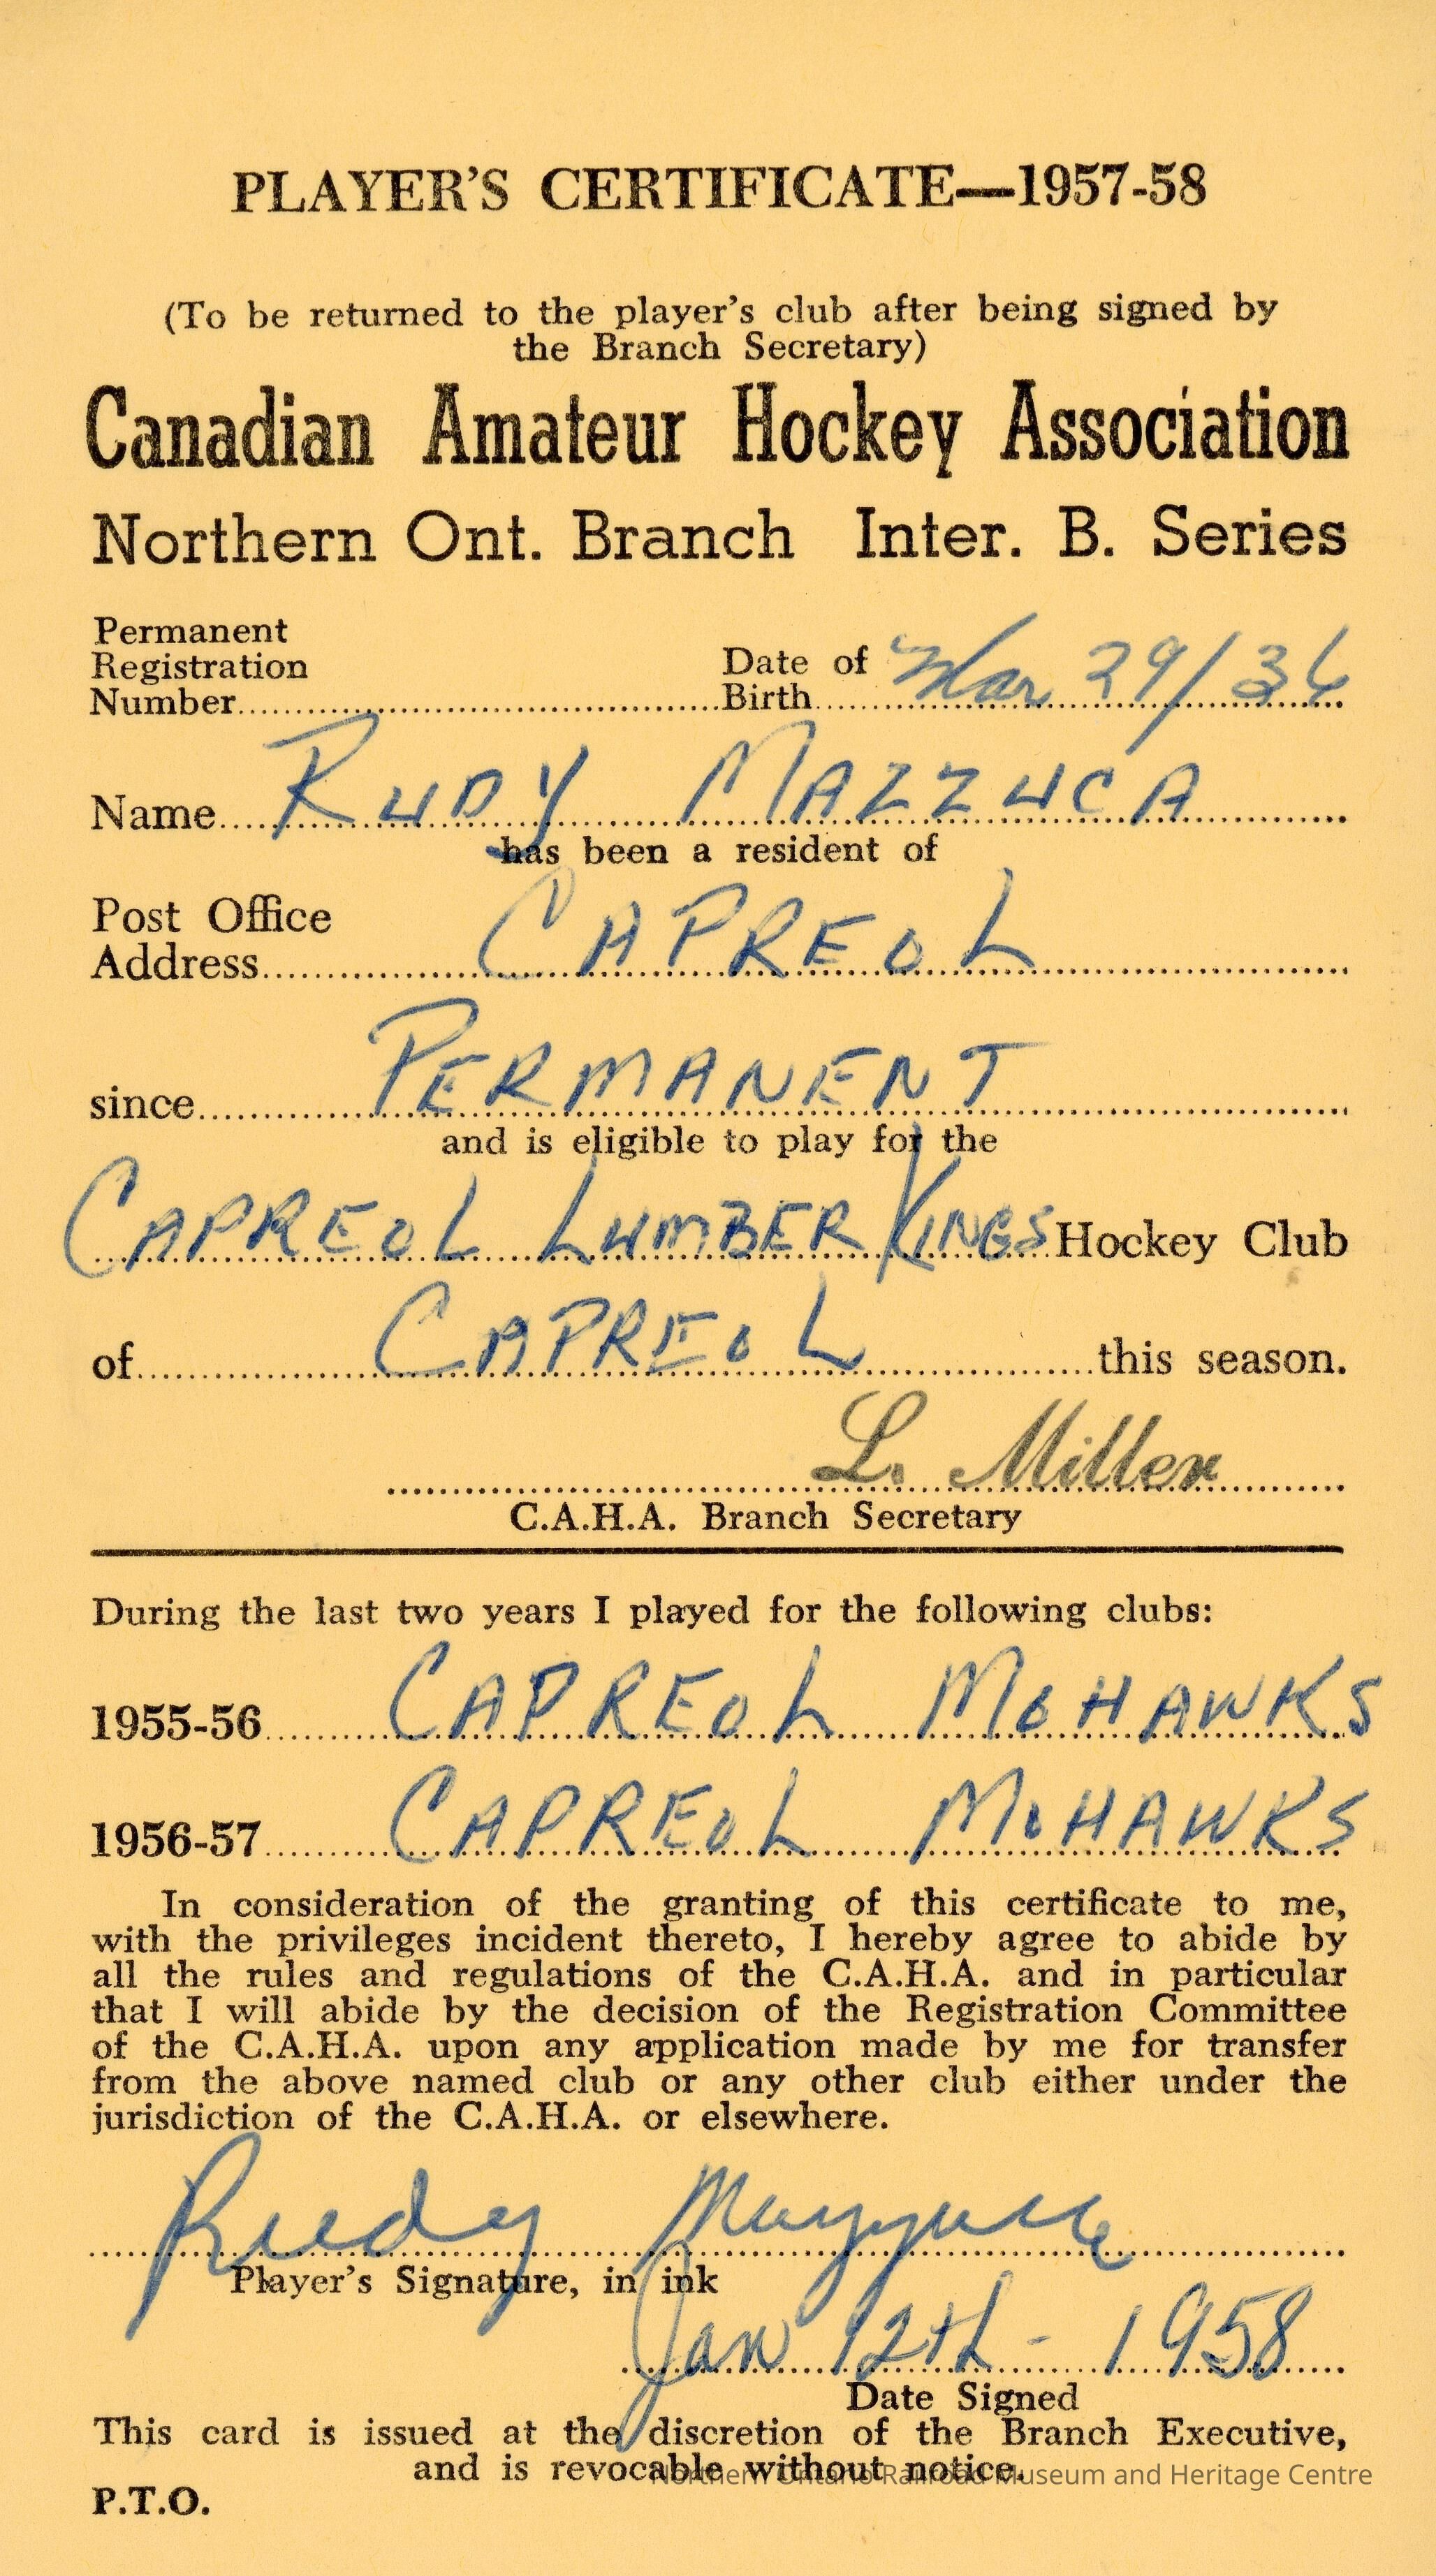 PLAYER'S CERTIFICATE—1957-58
(To be returned to the player's club after being signed by
the Branch Secretary)
Canadian Amateur Hockey Association
Northern Ont. Branch Inter. B. Series
Permanent
Registration
Number
Date of
Birth Mar 29/36
Name RUDY MAZZUCA
has been a resident of
Post Office
Address CAPREOL
since PERMANENT
and is eligible to play for the
CAPREOL LUMBER KINGS Hockey Club
of CAPREOL this season.
L. Miller
C.A.H.A. Branch Secretary
During the last two years I played for the following clubs:
1955-56 CAPREOL MOHAWKS
1956-57 CAPREOL MOHAWKS
In consideration of the granting of this certificate to me,
with the privileges incident thereto, I hereby agree to abide by
all the rules and regulations of the C.A.H.A. and in particular
that I will abide by the decision of the Registration Committee
of the C.A.H.A. upon any application made by me for transfer
from the above named club or any other club either under the
jurisdiction of the C.A.H.A. or elsewhere.
Rudy Mazzuca
Player's Signature, in ink
Jan 12th - 1958
Date Signed
This card is issued at the discretion of the Branch Executive,
and is revocable without notice.
Northern Ontario Railroad Museum and Heritage Centre
P.T.O.